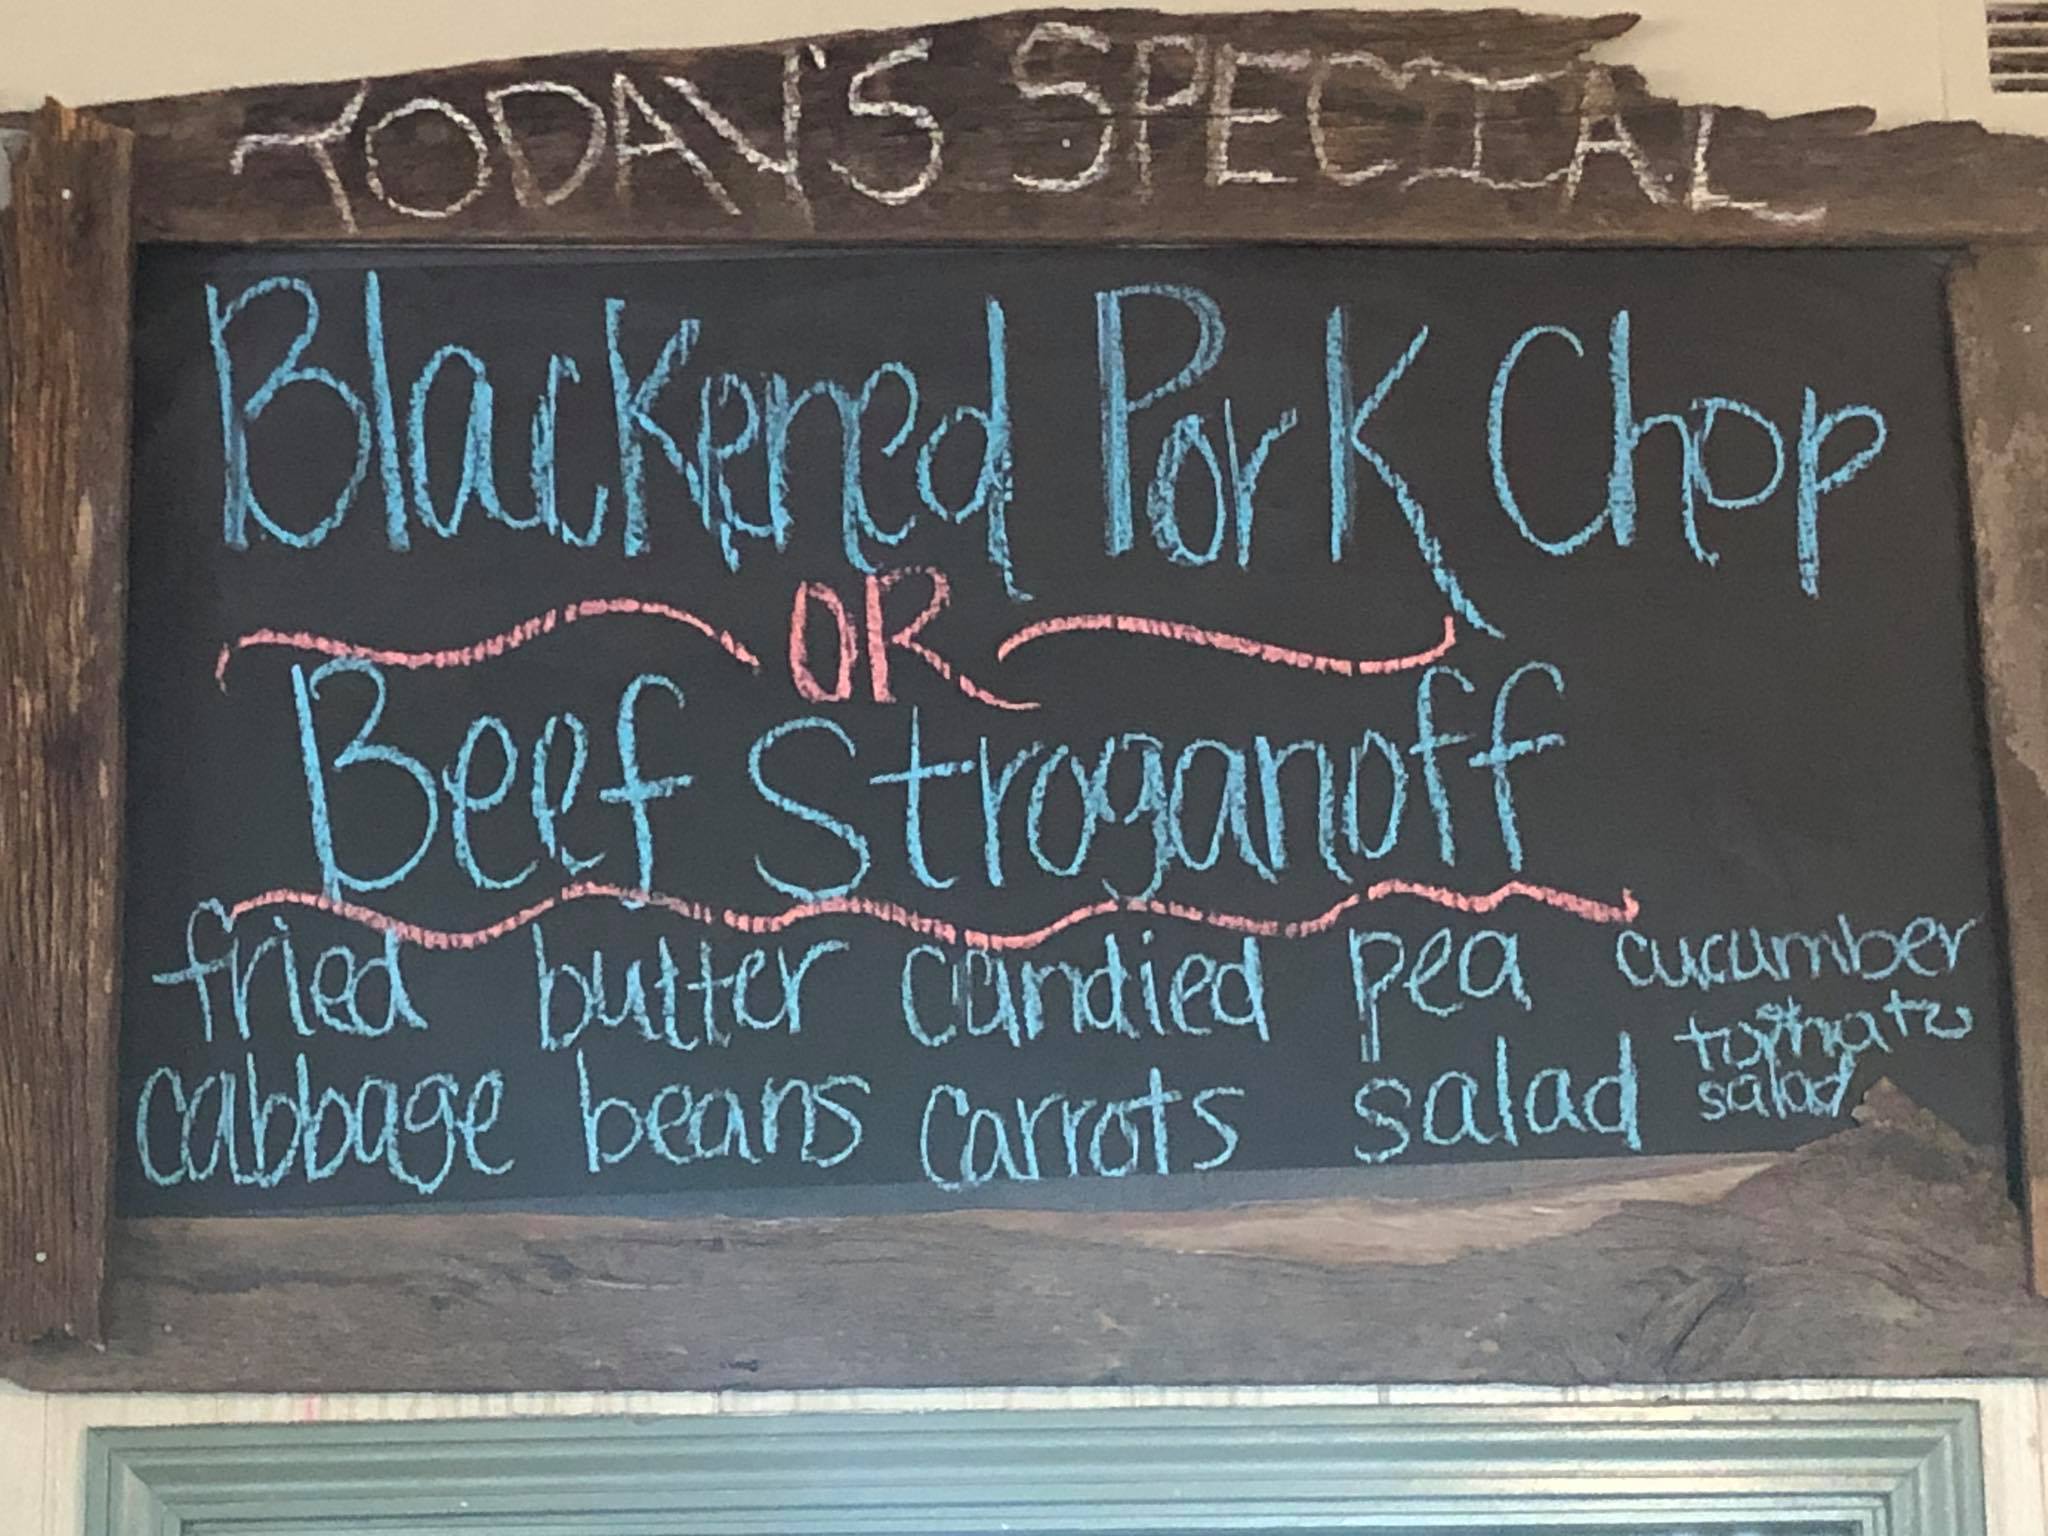 TODAY'S SPECIAL
Blackened Pork Chop
OR
Beef Stroganoff
fried cabbage
butter beans
candied carrots
pea salad
cucumber
tomato
salad